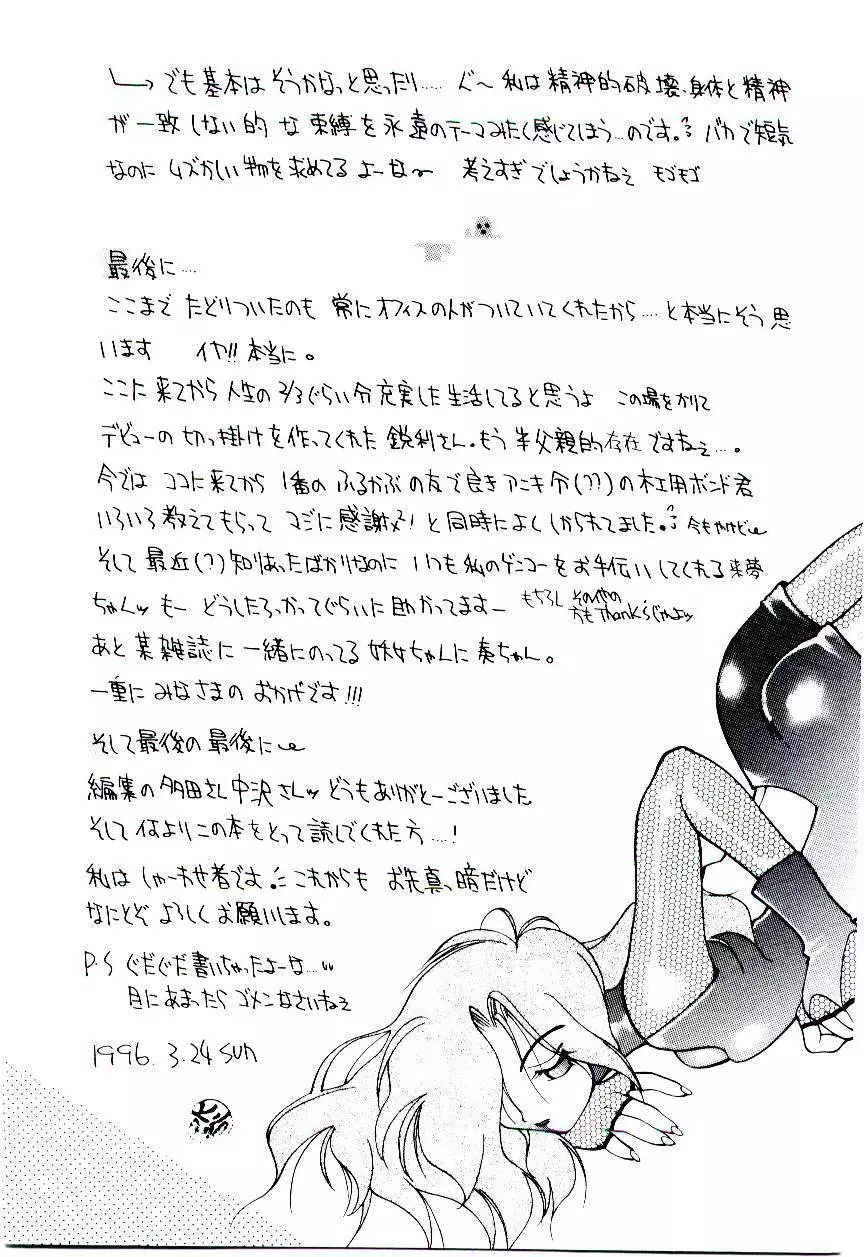 でも基本はそうかなっと思ったり…… ぐ〜私は精神的破壊、身体と精神
が一致しない的な束縛を永遠のテーマみたく感じてしまう…のです。バカで短気
なのにムズかしい物を求めてるよーな〜 考えすぎでしょうかねえ モゴモゴ
最後に…
ここまでたどりついたのも 常にオフィスの人がついていてくれたから……と本当にそう思
います イヤ!!本当に。
ここに来てから人生の2/3ぐらい分充実した生活してると思うよ この場をかりて
デビューの切っ掛けを作ってくれた鋭利さん、もう半父親的存在ですねぇ…。
今では ココに来てから 1番のふるかぶの友で良きアニキ分(??)の木工用ボンド君
いろいろ教えてもらって マジに感謝〆!と同時によくしかられてました。今もやけど
そして最近(?)知りあったばかりなのに いつも私のゲンコーをお手伝いしてくれる来夢
ちゃんッ もー どうしたろかってぐらいに助かってますー もちろん その他の方もThank'sじゃよッ
あと某雑誌に一緒にのってる ちゃんに奏ちゃん。
一重にみなさまのおかげです!!!
そして最後の最後に
編集の多田さん中沢さんッ どうもありがとーございました
そして何よりこの本をとって読んでくれた方……!
私はしゃーわせ者です これからも お先真っ暗だけど
なにとぞ よろしくお願いします。
P.S ぐだぐだ書いちゃったよーな…
目にあまったら ゴメンなさいねぇ
1996. 3.24 SUN